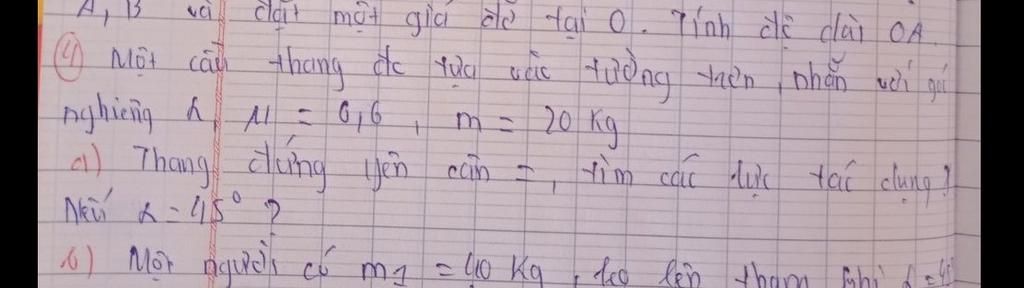 A, B và đặt một giá đỡ tại O. Tính độ dài OA
④ Một cầu thang đc tựa vào tường trơn, nhẵn với gó
nghiêng α, μ = 0,6, m = 20 Kg
a) Thang đứng yên cân =, tìm các lực tác dụng?
Nếu α = 45° ?
b) Một người có m1 = 40 Kg, leo lên thang khi α =